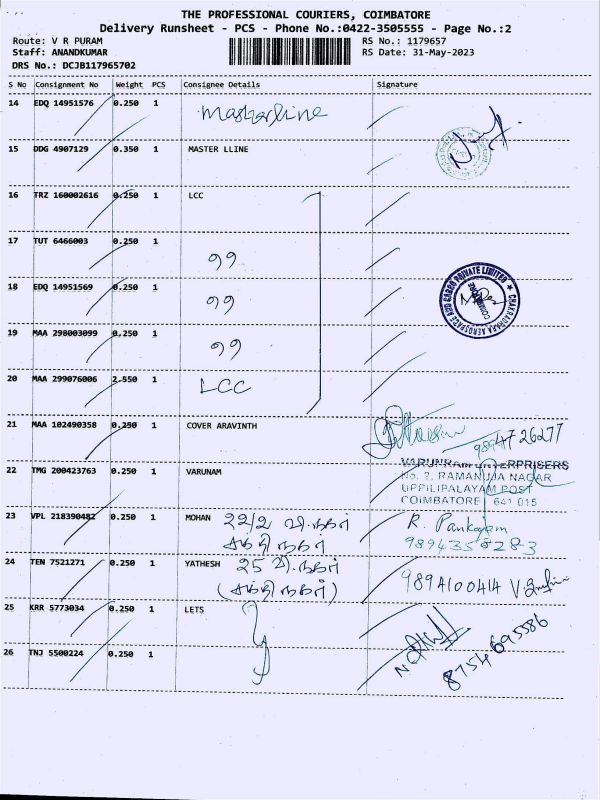 THE PROFESSIONAL COURIERS, COIMBATORE
Delivery Runsheet - PCS - Phone No.:0422-3505555 - Page No.:2
Route: V R PURAM
RS No.: 1179657
Staff: ANANDKUMAR
RS Date: 31-May-2023
DRS No.: DCJB117965702
S No Consignment No Weight PCS Consignee Details Signature
14 EDQ 14951576 0.250 1 Masterline
15 DDG 4907129 0.350 1 MASTER LLINE
16 TRZ 160002616 0.250 1 LCC
17 TUT 6466003 0.250 1 99
18 EDQ 14951569 0.250 1 99
CHAKRADHARA AEROSPACE AND CARGO PRIVATE LIMITED
COIMBATORE
19 MAA 298003099 0.250 1 99
20 MAA 299076006 2.550 1 LCC
21 MAA 102490358 0.250 1 COVER ARAVINTH
9894726277
22 TMG 200423763 0.250 1 VARUNAM
VARUNRAM ENTERPRISERS
No. 2, RAMANUJA NAGAR
UPPILIPALAYAM POST
COIMBATORE 641 015
23 VPL 218390482 0.250 1 MOHAN 22/2 வி.நகர் R. Pankajam
சக்தி நகர் 9894350283
24 TEN 7521271 0.250 1 YATHESH 25 வி.நகர் 9894100414
(சக்தி நகர்)
25 KRR 5773034 0.250 1 LETS
26 TNJ 5500224 0.250 1 8754695586